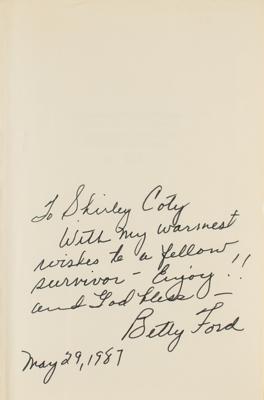 To Shirley Coty
With my warmest
wishes to a fellow
survivor - Enjoy!!
and God bless -
Betty Ford
May 29, 1987